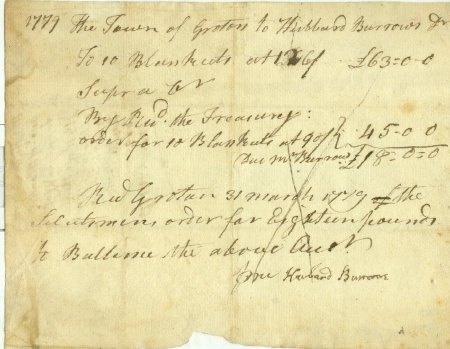 1779 the Town of Groton to Hubbard Burrows Dr
To 10 Blankets at 126/ £63=0-0
Supra Cr
By Recd. the Treasury:
order for 10 Blankets at 90/ 45-0 0
Due Mr Burrows £18=0=0
Recd Groton 31 march 1779 of the
Selectmens order for Eighteen pounds
to Ballence the above Acct.
Hubbard Burrows